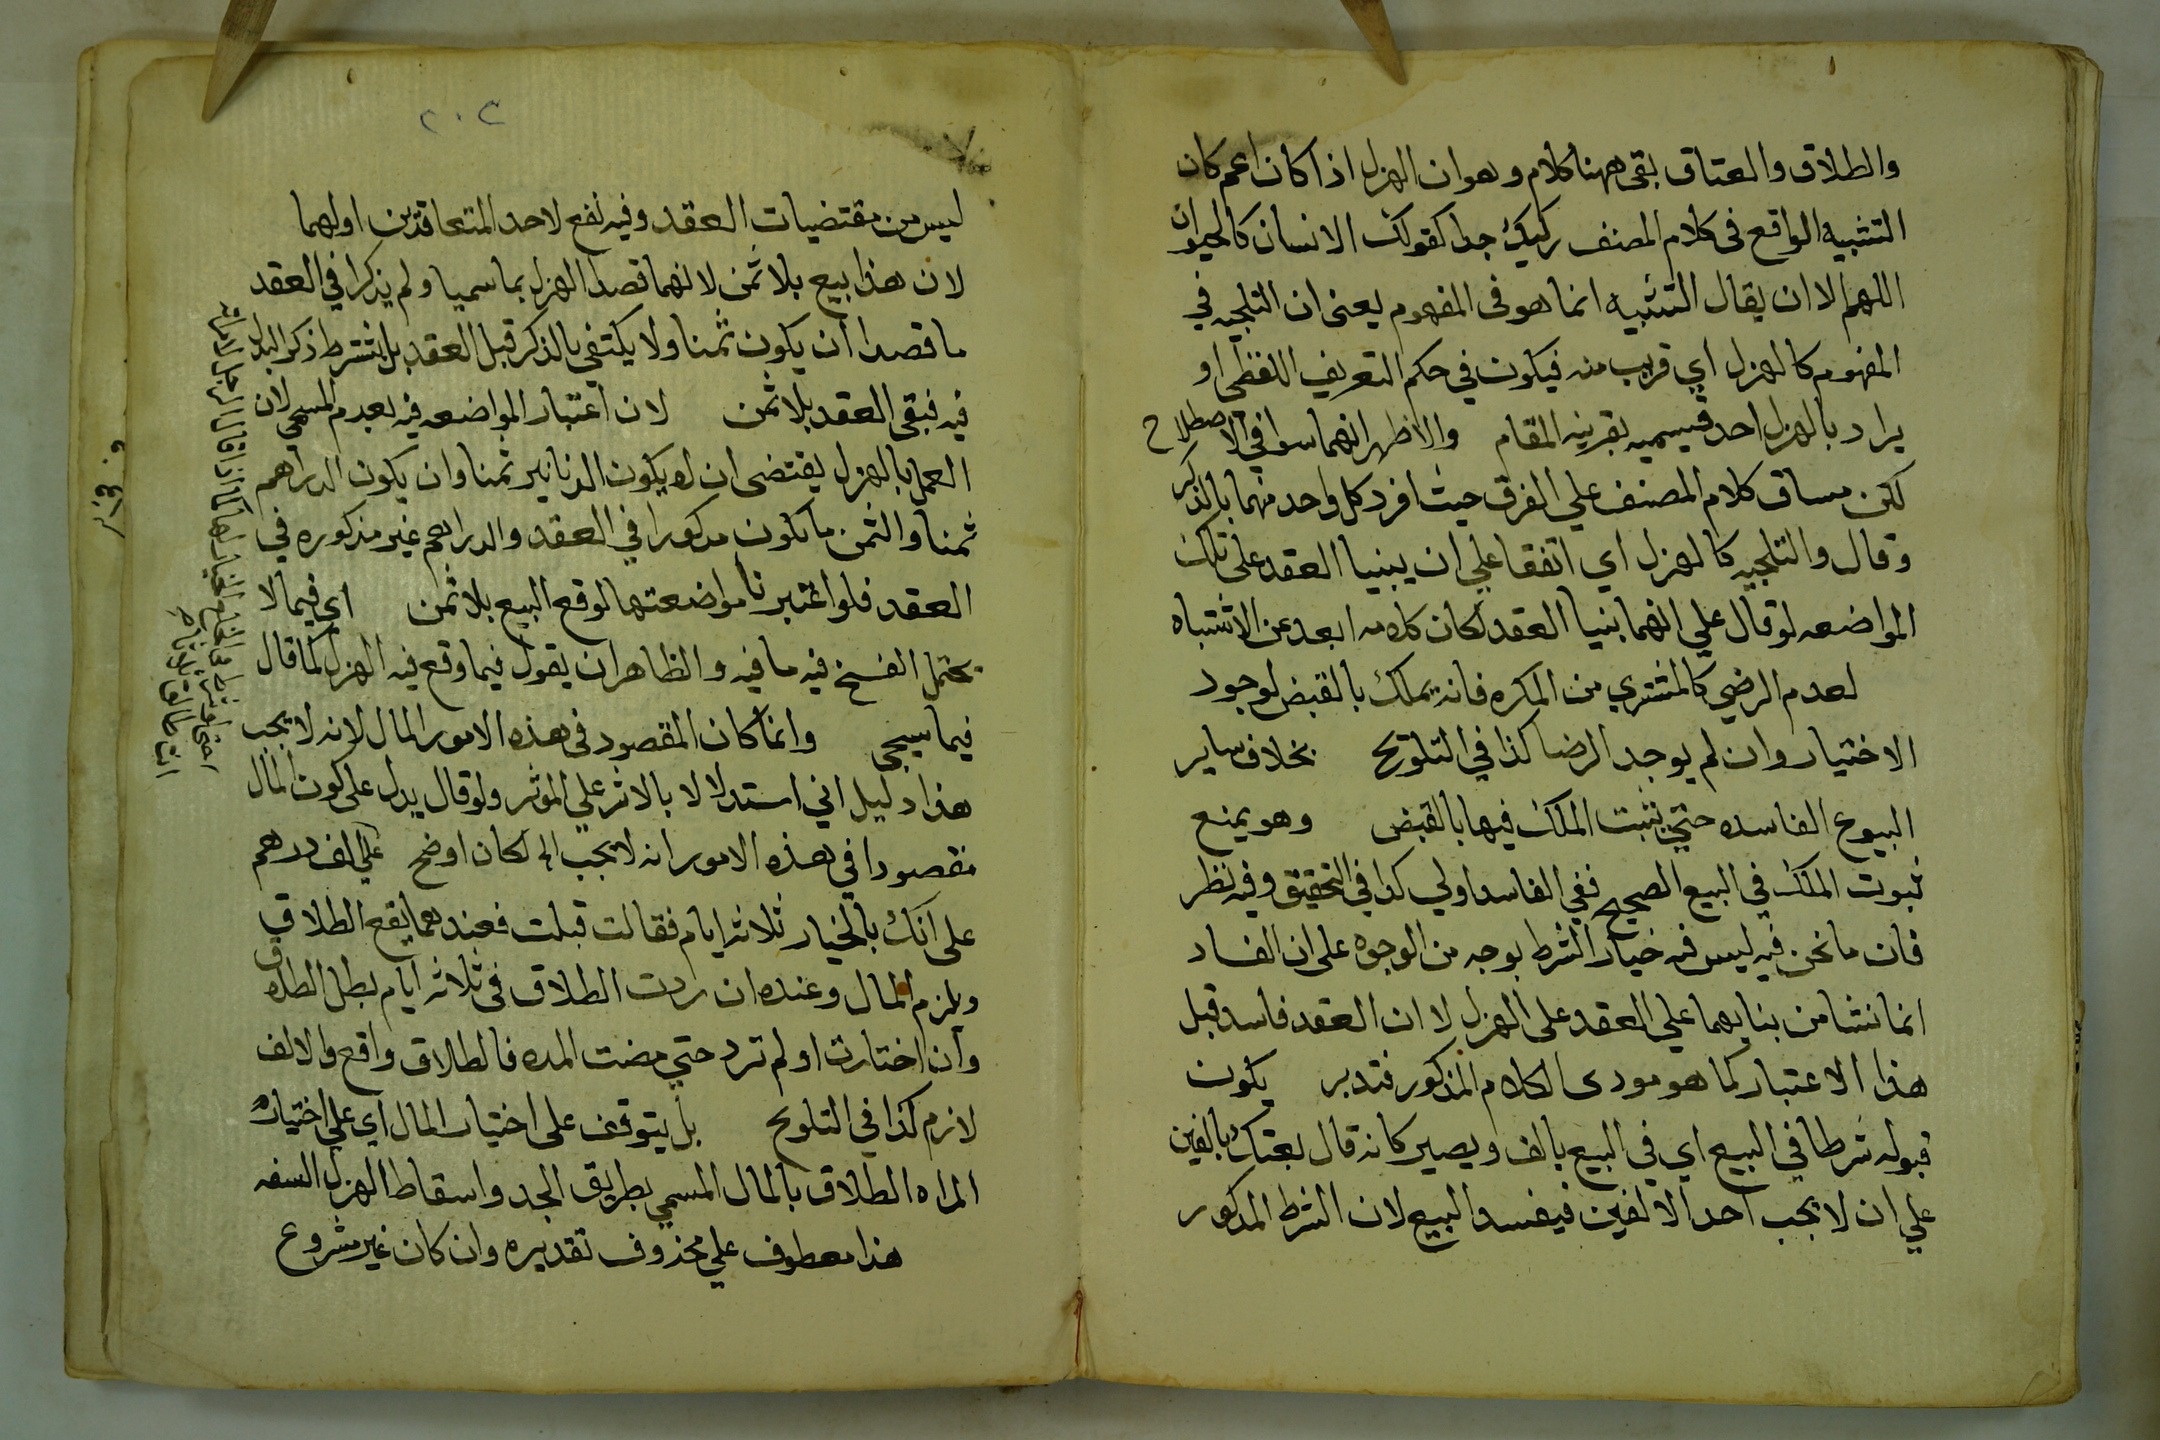 والطلاق والعتاق بقى ههنا كلام وهو ان الهزل اذا كان اعم كان
التشبيه الواقع فى كلام المصنف ركيك جدا كقولك الانسان كالحيوان
اللهم الا ان يقال التشبيه انما هو فى المفهوم يعنى ان التلجيه في
المفهوم كالهزل اي قريب منه فيكون في حكم التعريف اللفظي او
يراد بالهزل احد قسيميه بقرينه المقام والاظهر انهما سوا في الاصطلاح
لكن مساق كلام المصنف علي الفرق حيث افرد كل واحد منهما بالذكر
وقال والتلجيه كالهزل اي اتفقا علي ان يبنيا العقد على تلك
المواضعه لو قال علي انهما بنيا العقد لكان كلامه ابعد عن الاشتباه
لعدم الرضي كالمشتري من المكره فانه يملك بالقبض لوجود
الاختيار وان لم يوجد الرضا كذا في التلويح بخلاف ساير
البيوع الفاسده حتي يثبت الملك فيها بالقبض وهو يمنع
ثبوت الملك في البيع الصحيح ففي الفاسد اولي كذا في التحقيق وفيه نظر
فان ما نحن فيه ليس فيه خيار الشرط بوجه من الوجوه على ان الفساد
انما نشا من بنايهما علي العقد على الهزل لا ان العقد فاسد قبل
هذا الاعتبار كما هو مودى الكلام المذكور فتدبر يكون
قبوله شرطا في البيع اي في البيع بالف ويصير كانه قال بعتك بالفين
علي ان لا يجب احد الالفين فيفسد البيع لان الشرط المذكور
٢٠٣
ليس من مقتضيات العقد وفيه نفع لاحد المتعاقدين او لهما
لان هذا بيع بلا ثمن لانهما قصدا الهزل بما سميا ولم يذكرا في العقد
ما قصدا ان يكون ثمنا ولا يكتفي بالذكر قبل العقد بل يشترط ذكر البدل
فيه فبقى العقد بلا ثمن لان اعتبار المواضعه فيه يعدم المسمى لان
العمل بالهزل يقتضى ان لا يكون الدنانير ثمنا وان يكون الدراهم
ثمنا والثمن ما يكون مذكورا في العقد والدراهم غير مذكوره في
العقد فلو اعتبرنا مواضعتهما لوقع البيع بلا ثمن اي فيما لا
يحتمل الفسخ فيه ما فيه والظاهر ان يقول فيما وقع فيه الهزل كما قال
فيما سيجى وانما كان المقصود فى هذه الامور المال لانه لا يجب
هذا دليل اني استدلالا بالاثر علي المؤثر ولو قال يدل على كون المال
مقصودا في هذه الامور انه لا يجب الخ لكان اوضح علي الف درهم
على انك بالخيار ثلاثه ايام فقالت قبلت فعندهما يقع الطلاق
ويلزم المال وعنده ان ردت الطلاق في ثلاثه ايام بطل الطلاق
وان اختارت او لم ترد حتي مضت المده فالطلاق واقع والالف
لازم كذا في التلويح بل يتوقف على اختيار المال اي علي اختيار
المراه الطلاق بالمال المسمي بطريق الجد واسقاط الهزل السفه
هذا معطوف علي محذوف تقديره وان كان غير مشروع